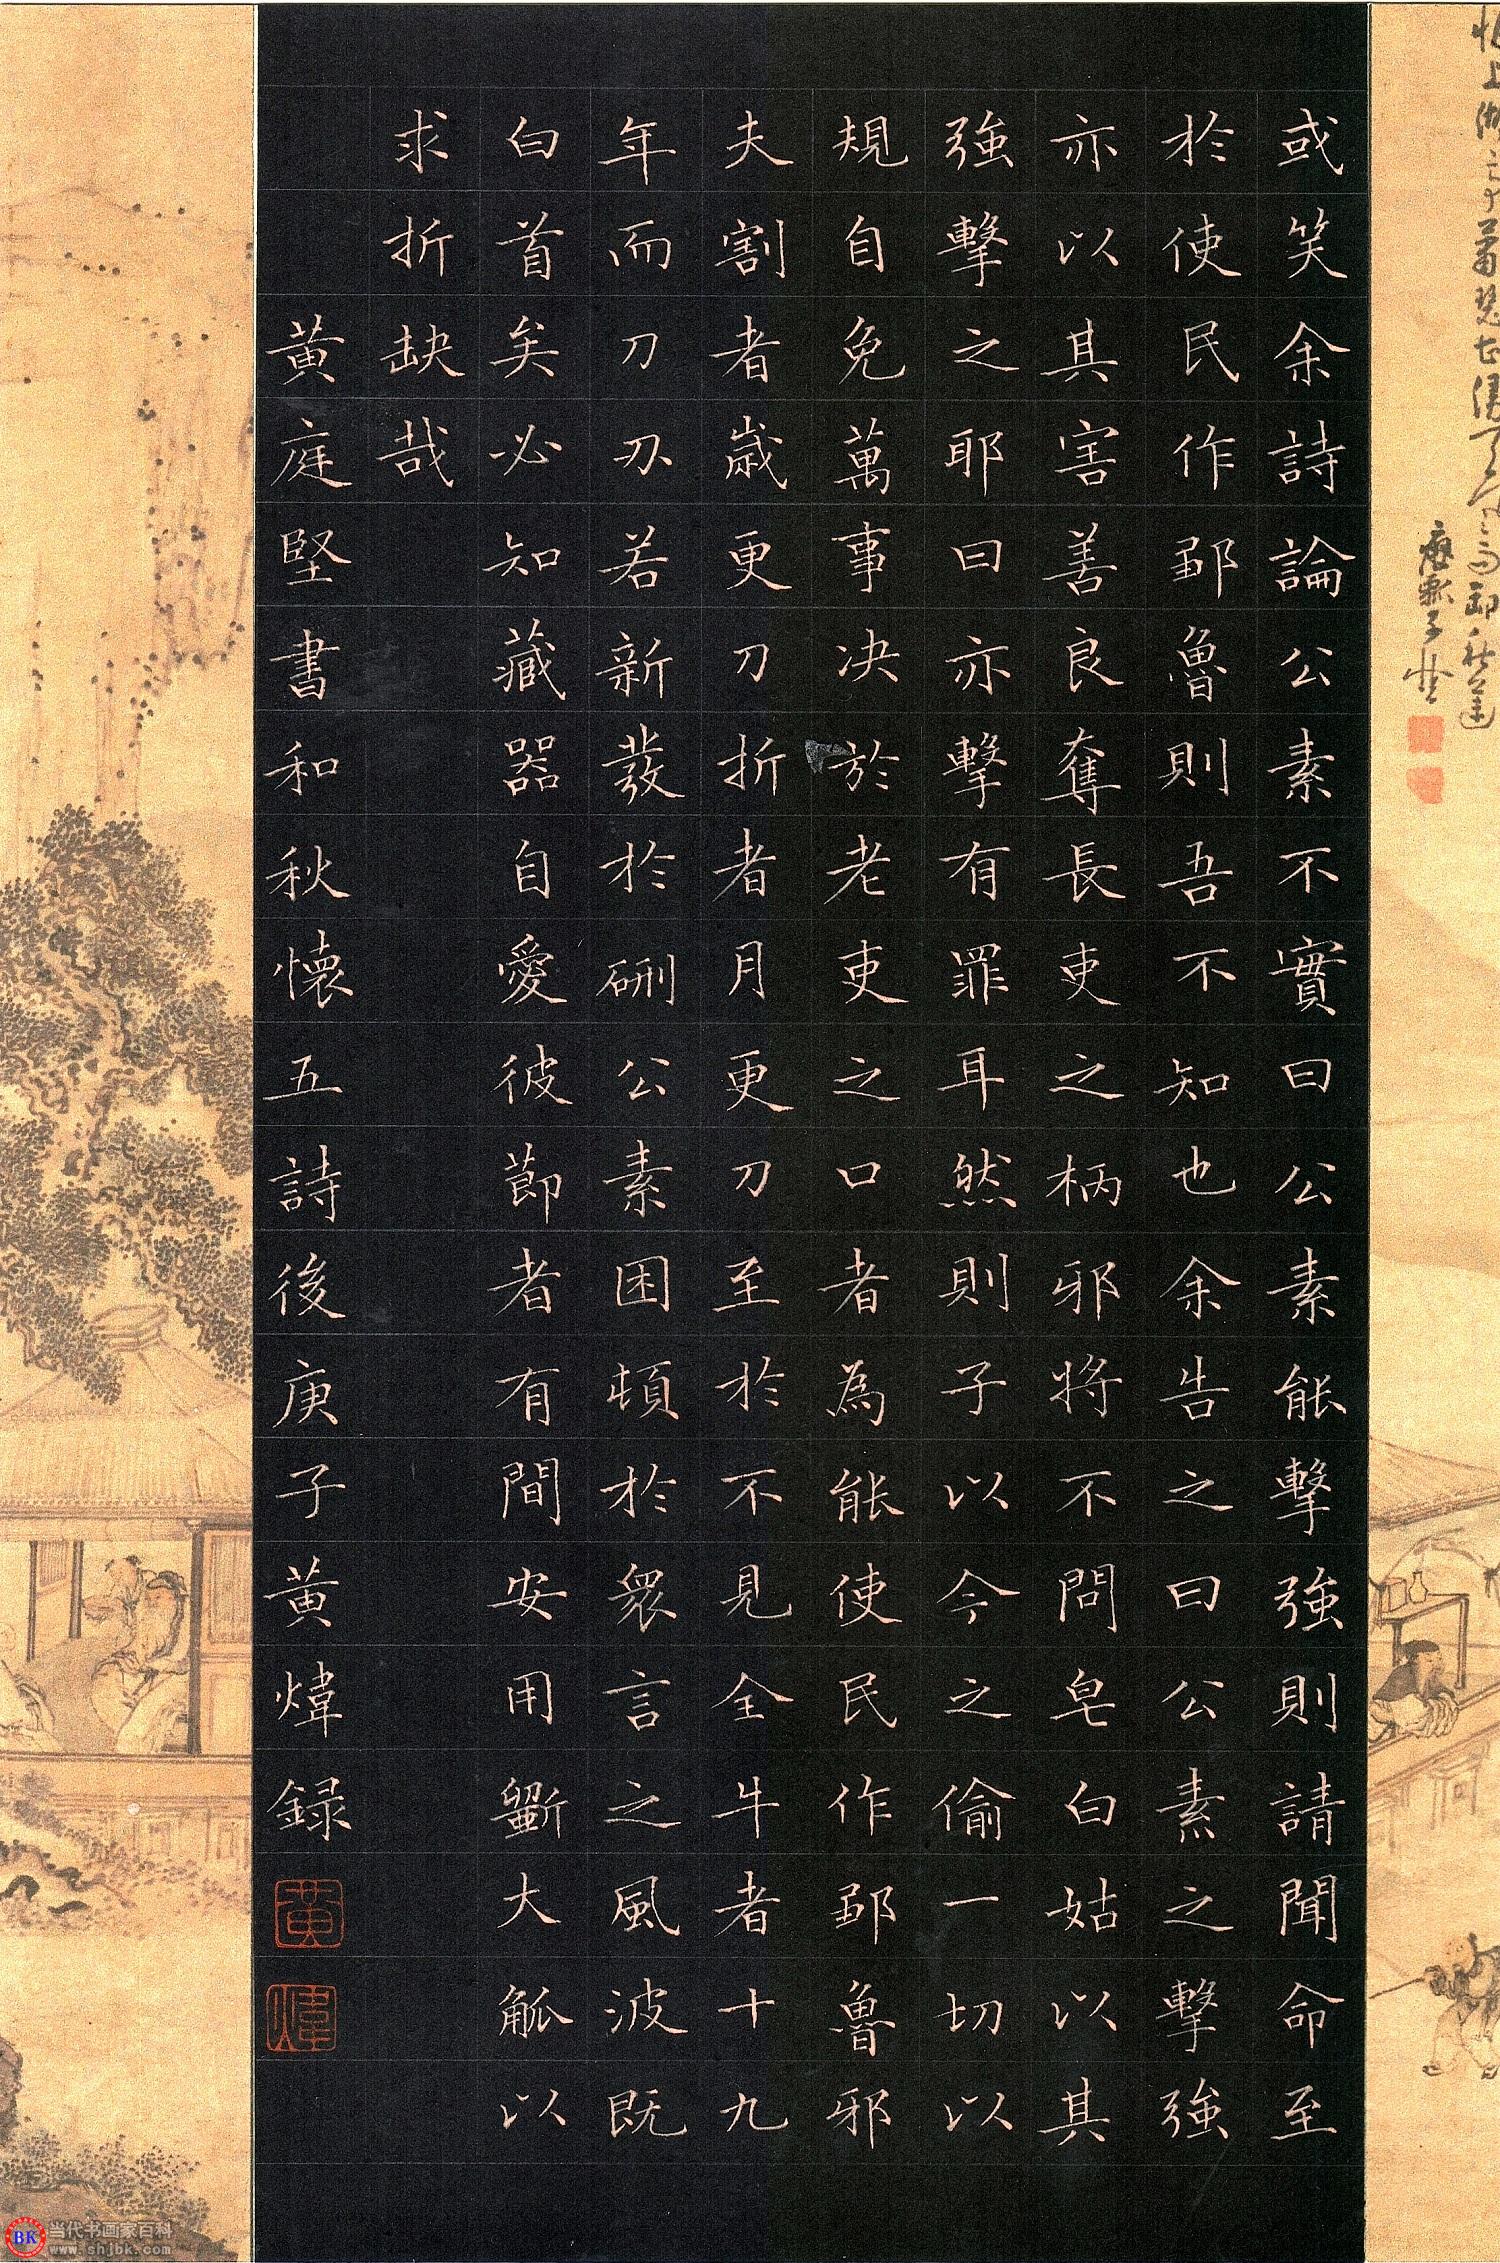 或笑余詩論公素不實曰公素能擊強則請聞命至
於使民作鄒魯則吾不知也余告之曰公素之擊強
亦以其害善良奪長吏之柄邪將不問皂白姑以其
強擊之耶曰亦擊有罪耳然則子以今之偷一切以
規自免萬事决於老吏之口者為能使民作鄒魯邪
夫割者歲更刀折者月更刀至於不見全牛者十九
年而刀刃若新發於硎公素困頓於眾言之風波既
白首矣必知藏器自愛彼節者有間安用斲大觚以
求折缺哉
黃庭堅書和秋懷五詩後庚子黃煒録
黃
煒
當代书画家百科
www.shjbk.com
BK